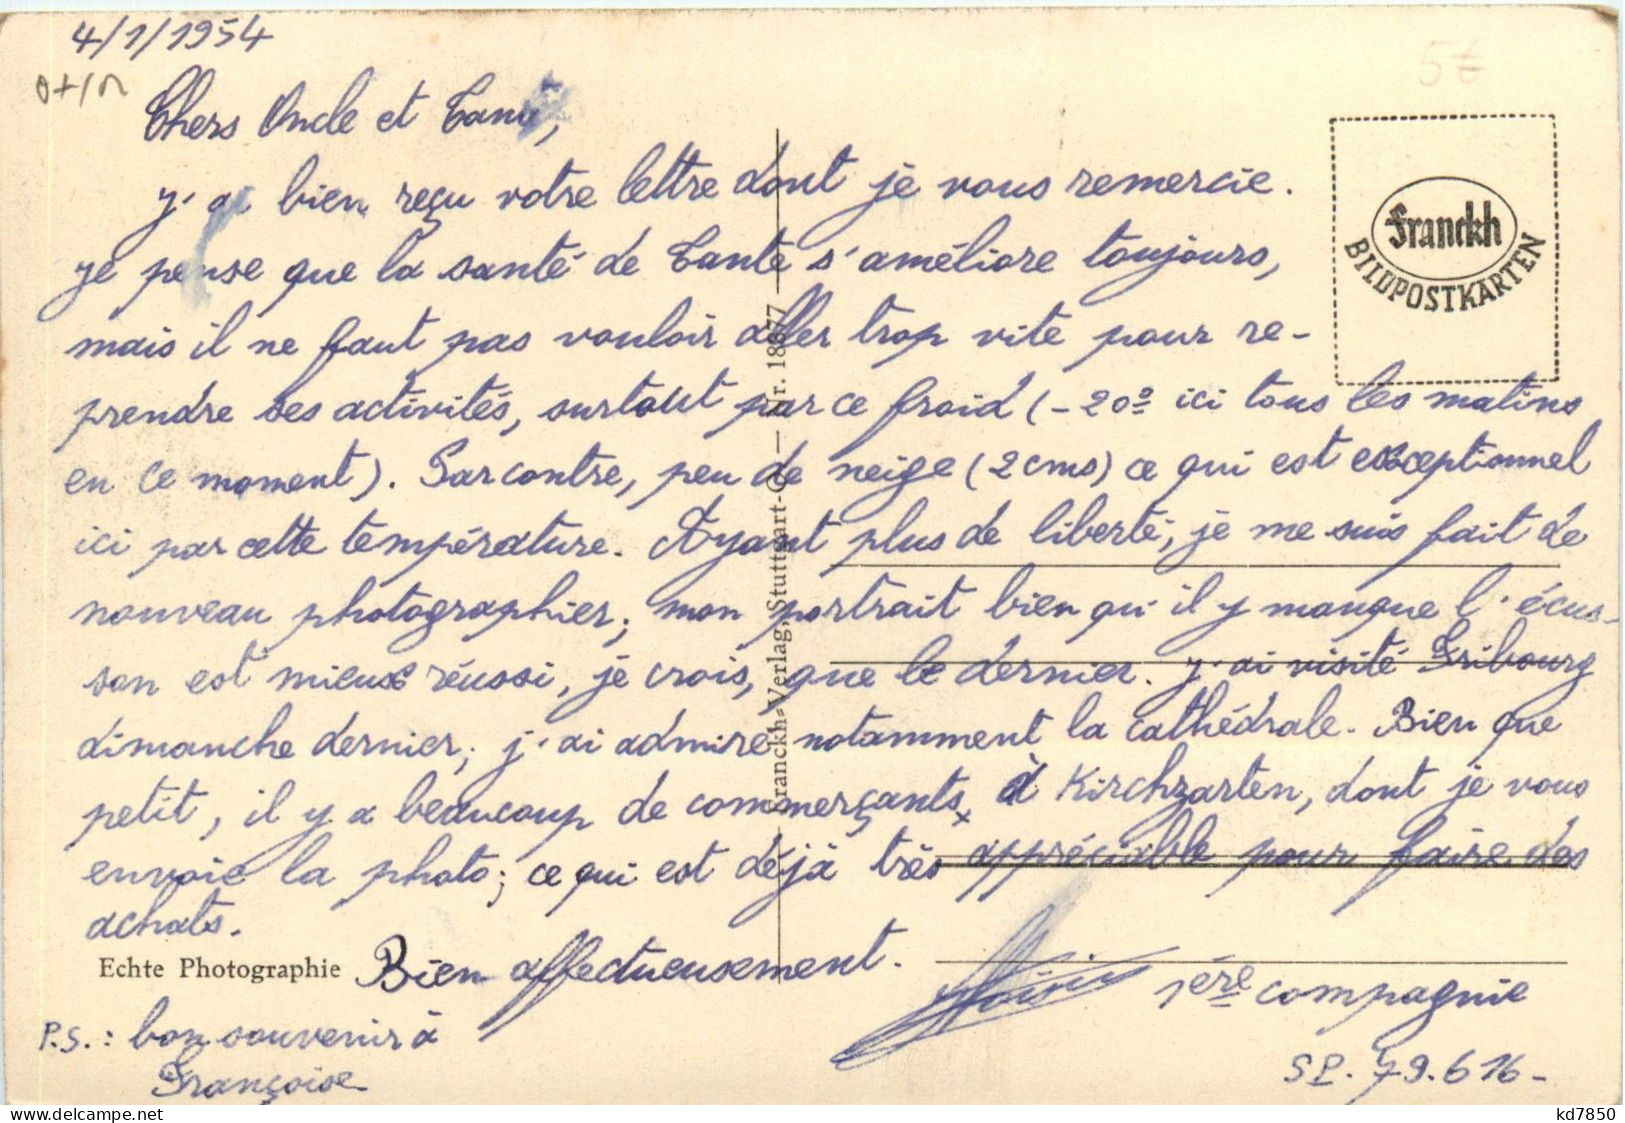 4/1/1954
5€
Chers Oncle et Tante,
J'ai bien reçu votre lettre dont je vous remercie.
Je pense que la santé de Tante s'améliore toujours,
mais il ne faut pas vouloir aller trop vite pour re-
prendre ses activités, surtout par ce froid (-20° ici tous les matins
en ce moment). Par contre, peu de neige (2 cms) ce qui est exceptionnel
ici par cette température. Ayant plus de liberté, je me suis fait de
nouveau photographier; mon portrait bien qu'il y manque l'écus-
son est mieux réussi, je crois, que le dernier. J'ai visité Fribourg
dimanche dernier; j'ai admiré notamment la cathédrale. Bien que
petit, il y a beaucoup de commerçants à Kirchzarten, dont je vous
envoie la photo; ce qui est déjà très appréciable pour faire des
achats.
Bien affectueusement.
1ère compagnie
SP. 79.616-
P.S.: bon souvenir à
Françoise
Franckh
BILDPOSTKARTEN
Franckh-Verlag, Stuttgart-O — Nr. 18877
Echte Photographie
kd7850